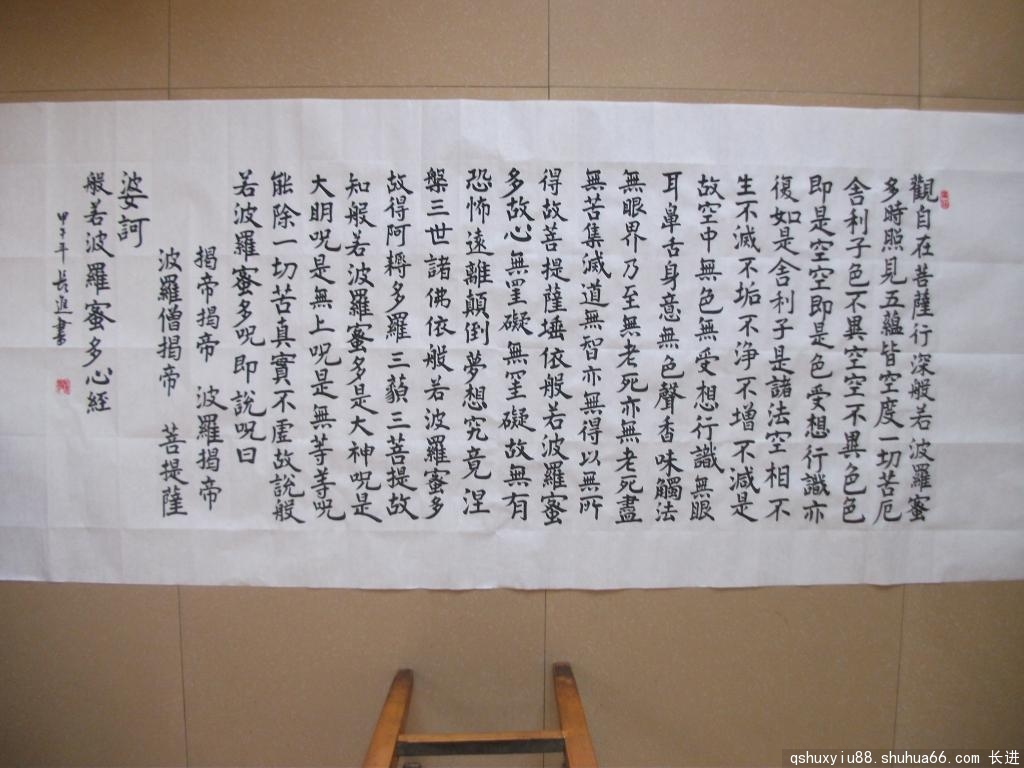 觀自在菩薩行深般若波羅蜜
多時照見五蘊皆空度一切苦厄
舍利子色不異空空不異色色
即是空空即是色受想行識亦
復如是舍利子是諸法空相不
生不滅不垢不淨不增不減是
故空中無色無受想行識無眼
耳鼻舌身意無色聲香味觸法
無眼界乃至無老死亦無老死盡
無苦集滅道無智亦無得以無所
得故菩提薩埵依般若波羅蜜
多故心無罣礙無罣礙故無有
恐怖遠離顛倒夢想究竟涅
槃三世諸佛依般若波羅蜜多
故得阿耨多羅三藐三菩提故
知般若波羅蜜多是大神呪是
大明呪是無上呪是無等等呪
能除一切苦真實不虛故說般
若波羅蜜多呪即說呪曰
揭帝揭帝 波羅揭帝
波羅僧揭帝 菩提薩
婆訶
般若波羅蜜多心經
甲午年長進書
qshuxyiu88.shuhua66.com 长进